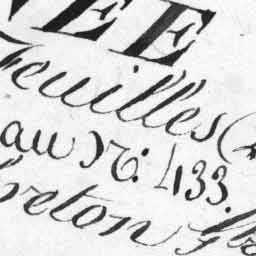 NEE
Feuilles (
au N.º 433.
breton